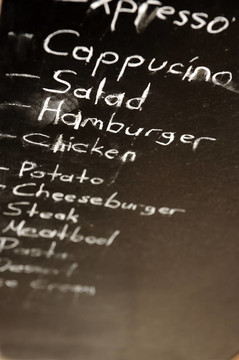 - Expresso
- Cappucino
- Salad
- Hamburger
- Chicken
- Potato
- Cheeseburger
Steak
Meatbool
Pasta
Desert
Ice Cream